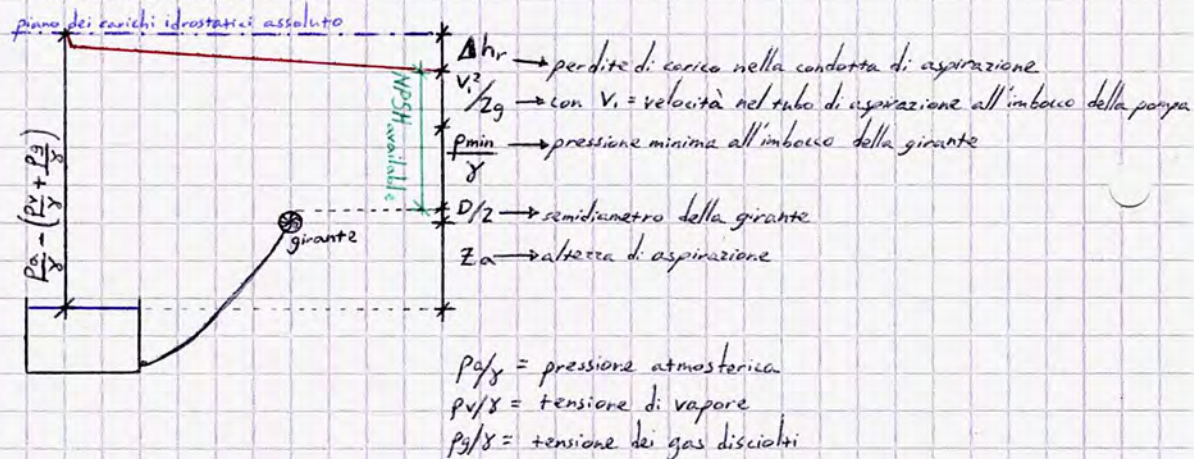 piano dei carichi idrostatici assoluto
Δhr → perdite di carico nella condotta di aspirazione
V₁²/2g → con V₁ = velocità nel tubo di aspirazione all'imbocco della pompa
pmin/γ → pressione minima all'imbocco della girante
D/2 → semidiametro della girante
Za → altezza di aspirazione
NPSH available
pa/γ - (pv/γ + pg/γ)
girante
pa/γ = pressione atmosferica
pv/γ = tensione di vapore
pg/γ = tensione dei gas disciolti